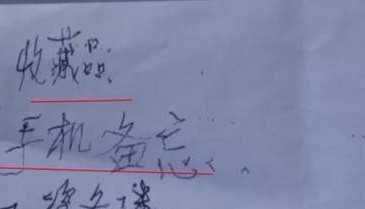 收藏品:
手机备忘